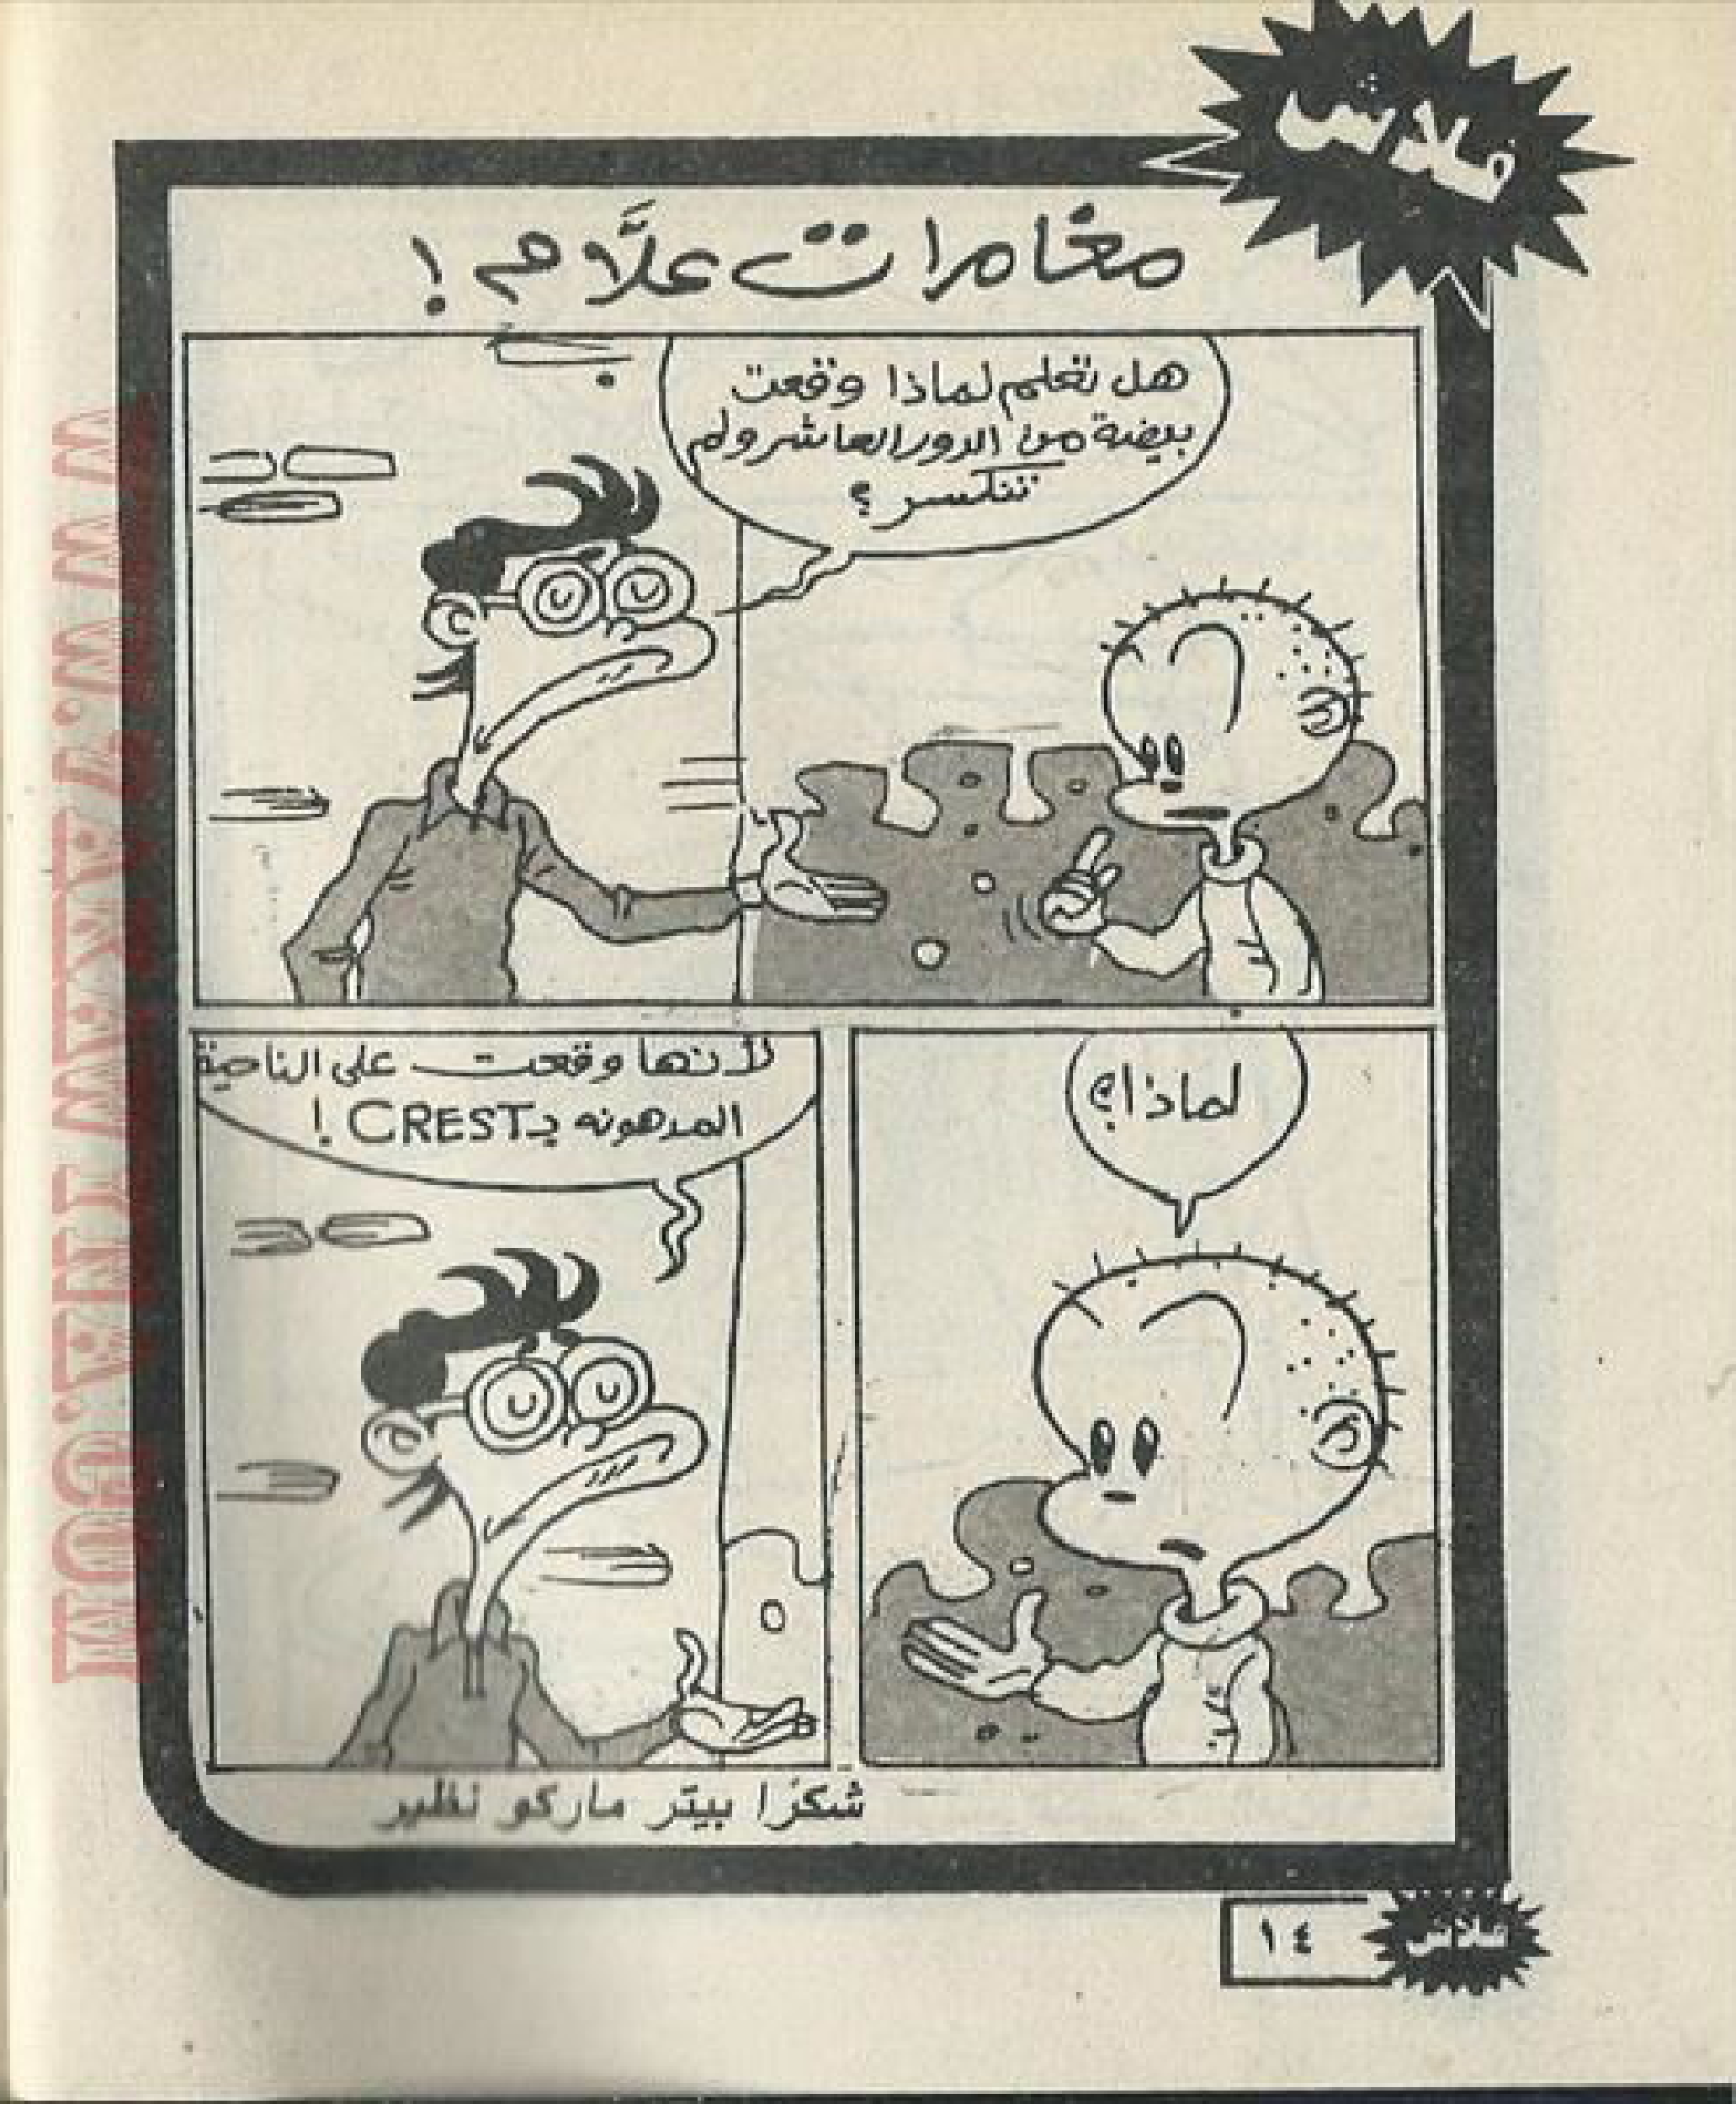 فلاش
مغامرات علَّام !
هل تعلم لماذا وقعت
بيضة من الدور العاشر ولم
تنكسر؟
لماذا؟
لأنها وقعت على الناحية
المدهونه بـ CREST !
شكرًا بيتر ماركو نظير
١٤
فلاش